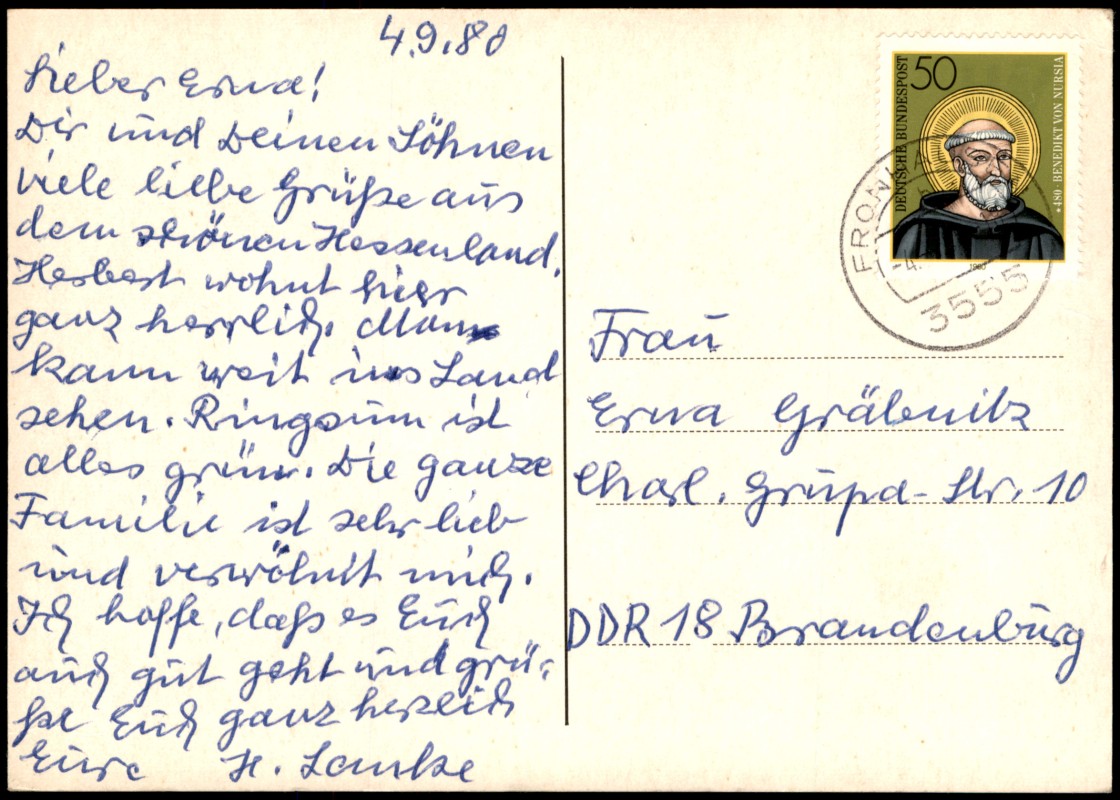 4.9.80
Lieber Erna!
Dir und Deinen Söhnen
viele liebe Grüße aus
dem schönen Hessenland.
Herbert wohnt hier
ganz herrlich. Man
kann weit ins Land
sehen. Ringsum ist
alles grün. Die ganze
Familie ist sehr lieb
und verwöhnt mich.
Ich hoffe, daß es Euch
auch gut geht und grü-
ße Euch ganz herzlich
Eure H. Lemke
DEUTSCHE BUNDESPOST
50
*480 · BENEDIKT VON NURSIA
-4.
3555
Frau
Erna Gräbnitz
Charl. Grupa-Str. 10
DDR 18 Brandenburg